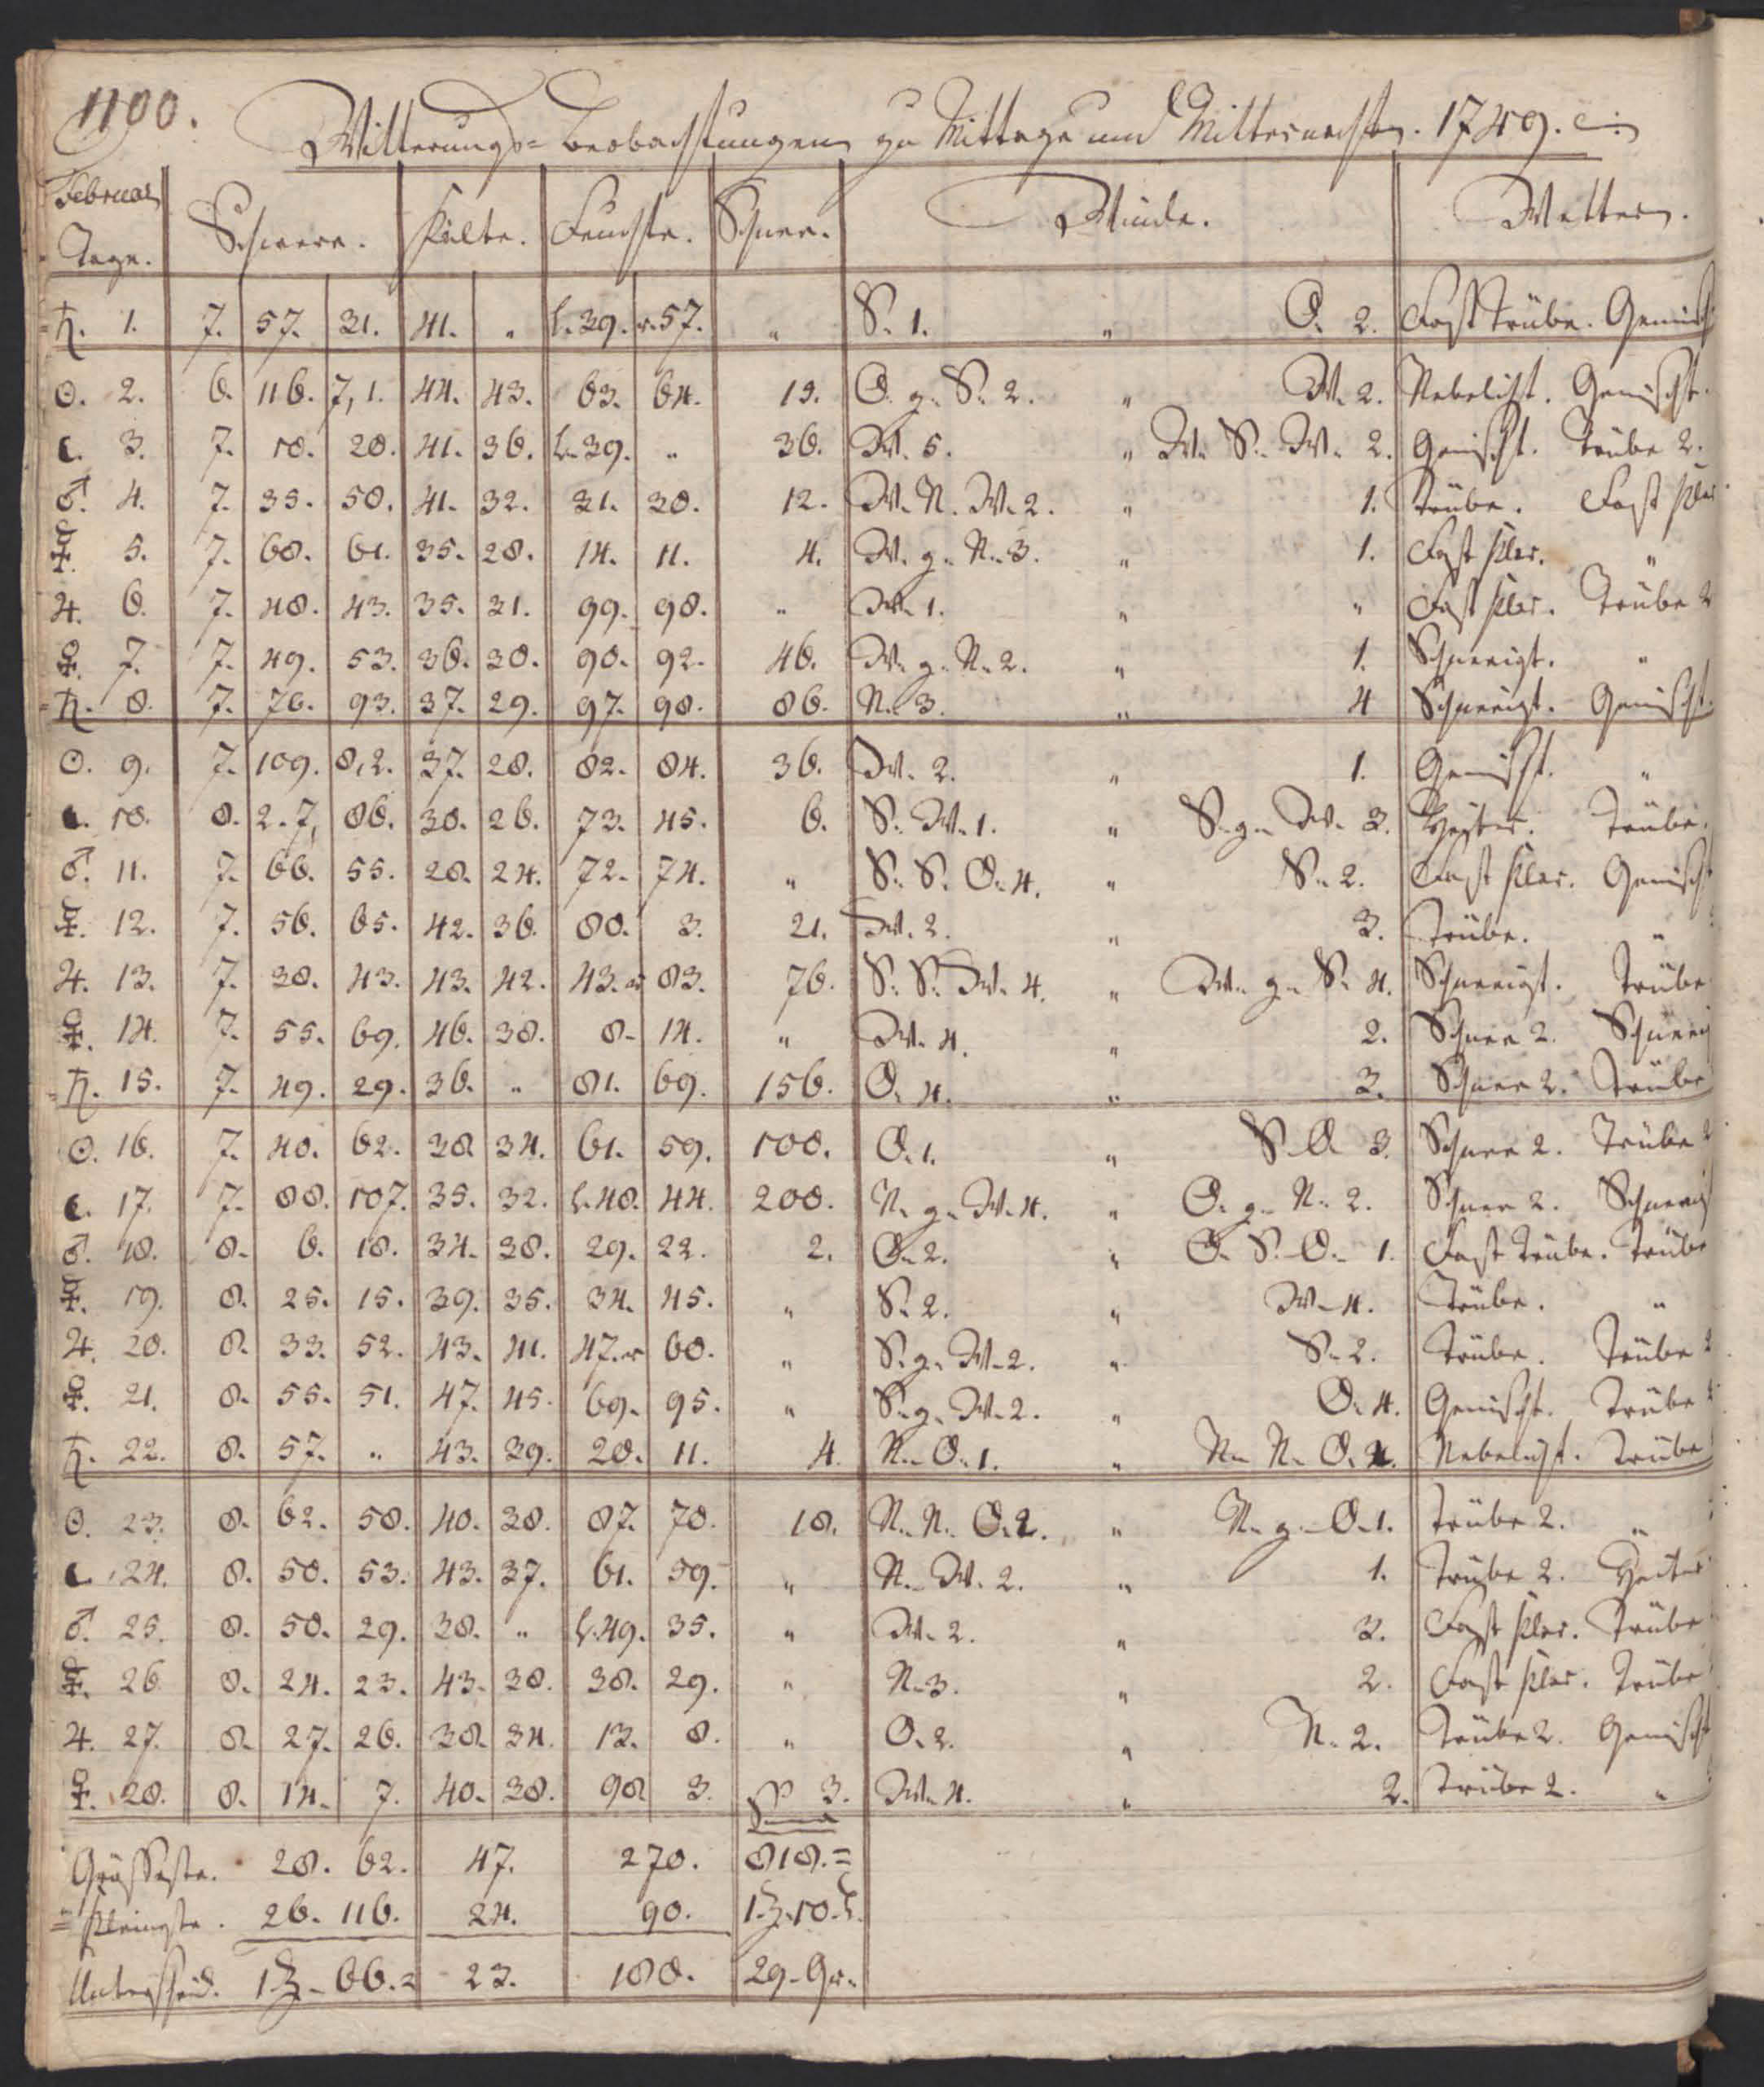 1100.
Witterungs= Beobachtungen zu Mittage und Mitternachten. 1749.
Februar Tage. Schwere. Kälte. Feuchte. Schnee. Winde. Wetter.
♄. 1. 7. 57. 31. 41. " l. 39. r. 57. " S. 1. " O. 2. Fast trübe. Gemischt
☉. 2. 6. 116. 7, 1. 44. 43. 63. 64. 19. O. g. S. 2. " W. 2. Nebelicht. Gemischt.
☾. 3. 7. 10. 20. 41. 36. l. 39. " 36. W. 5. " W. S. W. 2. Gemischt. Trübe 2.
♂. 4. 7. 35. 50. 41. 32. 31. 30. 12. W. N. W. 2. " 1. Trübe. Fast klar
☿. 5. 7. 68. 61. 35. 28. 14. 11. 4. W. g. N. 3. " 1. Fast klar. "
♃. 6. 7. 48. 43. 35. 31. 99. 98. " W. 1. " " Fast klar. Trübe 2
♀. 7. 7. 49. 53. 36. 30. 90. 92. 46. W. g. N. 2. " 1. Schneeigt. "
♄. 8. 7. 76. 93. 37. 29. 97. 98. 86. N. 3. " 4 Schneeigt. Gemischt.
☉. 9. 7. 109. 8, 2. 37. 28. 82. 84. 36. W. 2. " 1. Gemischt. "
☾. 10. 8. 2. 7, 86. 30. 26. 73. 45. 6. S. W. 1. " S. g. W. 3. Heiter. Trübe.
♂. 11. 7. 66. 55. 28. 24. 72. 74. " S. S. O. 4. " S. 2. Fast klar. Gemischt
☿. 12. 7. 56. 65. 42. 36. 80. 3. 21. W. 2. " 3. Trübe. "
♃. 13. 7. 38. 43. 43. 42. 43. r 83. 76. S. S. W. 4. " W. g. S. 4. Schneeigt. Trübe
♀. 14. 7. 55. 69. 46. 38. 8. 14. " W. 4. " 2. Schnee 2. Schneeig
♄. 15. 7. 49. 29. 36. " 81. 69. 156. O. 4. " 3. Schnee 2. Trübe
☉. 16. 7. 40. 62. 38 34. 61. 59. 100. O. 1. " S. O 3. Schnee 2. Trübe 2
☾. 17. 7. 88. 107. 35. 32. l. 48. 44. 208. N. g. W. 4. " O. g. N. 2. Schnee 2. Schneeig
♂. 18. 8. 6. 18. 34. 38. 29. 22. 2. O. 2. " O. S. O. 1. Fast trübe. Trübe
☿. 19. 8. 25. 15. 39. 35. 34. 45. " S. 2. " W. 4. Trübe. "
♃. 20. 8. 33. 52. 43. 41. 47. r 60. " S. g. W. 2. " S. 2. Trübe. Trübe 2
♀. 21. 8. 55. 51. 47. 45. 69. 95. " S. g. W. 2. " O. 4. Gemischt. Trübe
♄. 22. 8. 57. " 43. 39. 20. 11. 4. N. O. 1. " N. N. O. Nebelicht. Trübe
☉. 23. 8. 62. 58. 40. 38. 87. 70. 18. N. N. O. 2. " N. g. O. 1. Trübe 2. "
☾. 24. 8. 50. 53. 43. 37. 61. 59. " N. W. 2. " 1. Trübe 2. Heiter
♂. 25. 8. 50. 29. 38. " l. 49. 35. " W. 2. " 3. Fast klar. Trübe
☿. 26. 8. 24. 23. 43. 38. 38. 29. " N. 3. " 2. Fast klar. Trübe
♃. 27. 8. 27. 26. 38. 34. 13. 8. " O. 2. " N. 2. Trübe 2. Gemischt
♀. 28. 8. 14. 7. 40. 38. 98 3. 3. W. 4. " 2. Trübe 2. "
Summa
Grösseste. 28. 62. 47. 270. 818. =
Kleingste. 26. 116. 24. 90. 1 ℥. 10.
Unterscheid. 1 ℥ - 66. = 23. 180. 29. Gr.